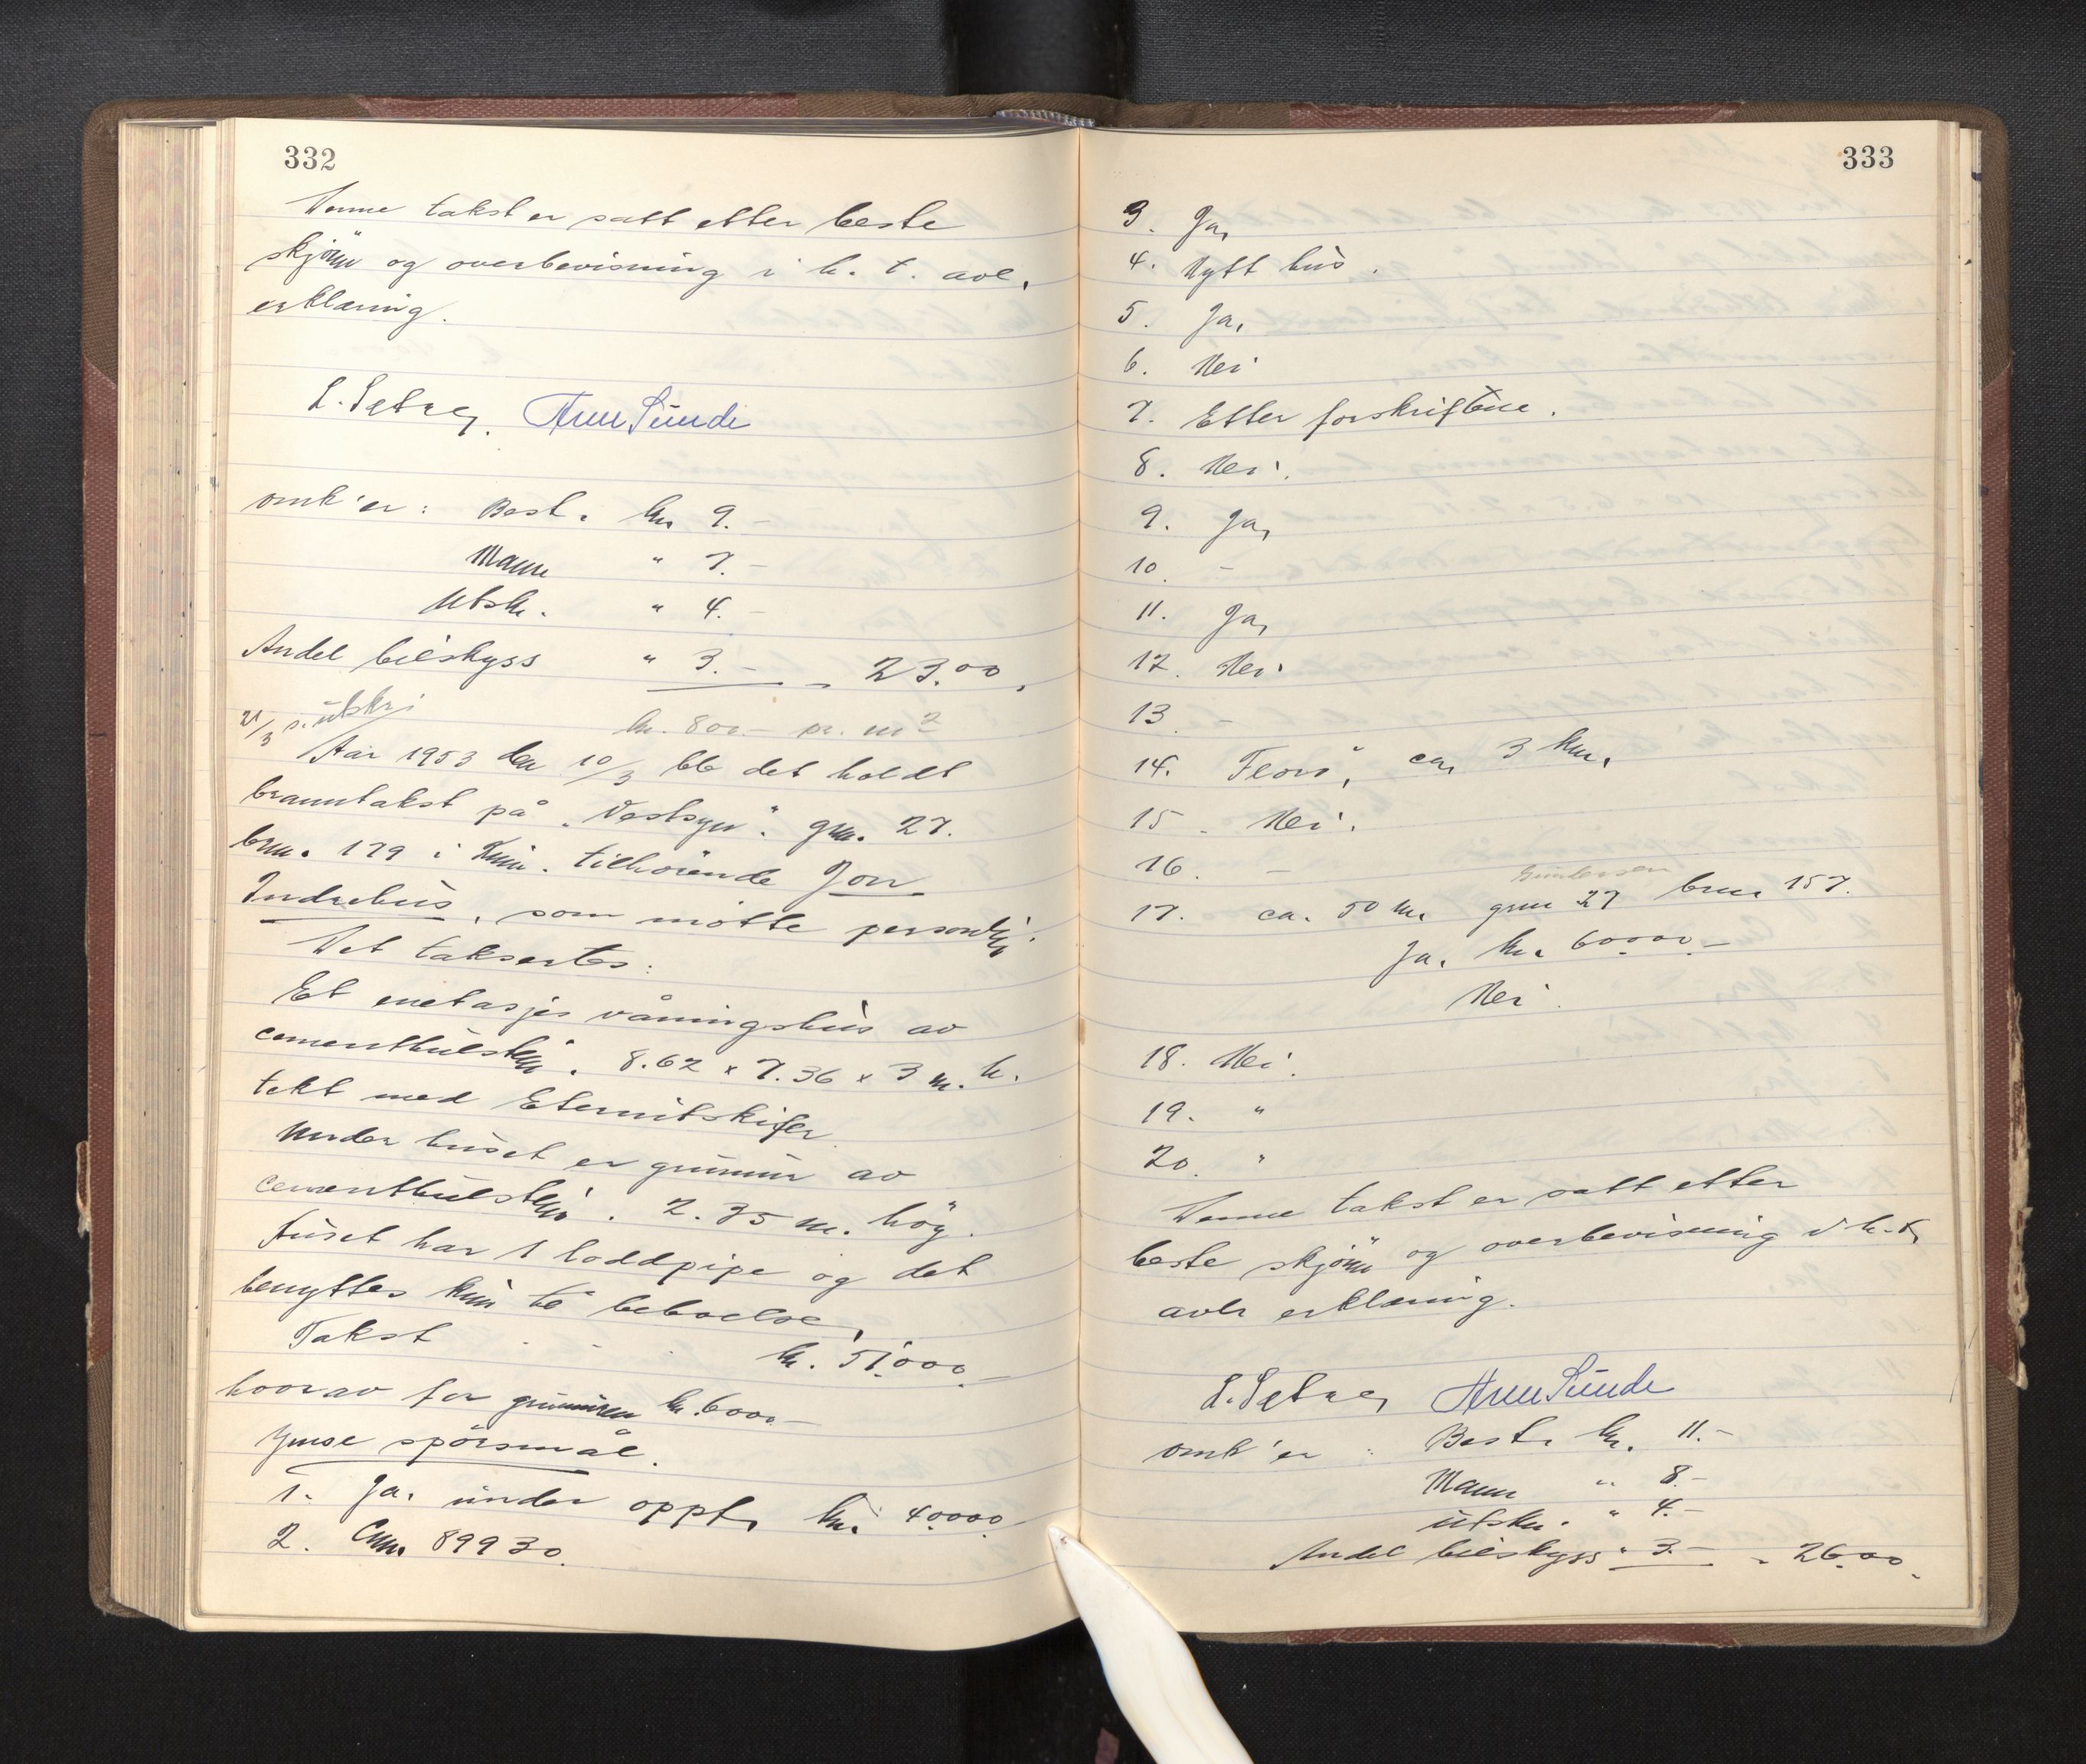 332
Denne takst er satt etter beste
skjönn og overbevisning i h. t. avl.
erklæring.
L. Sætre, Arne Sunde
omk'er: Best. kr 9.-
Mann " 7.-
Utskr. " 4.-
Andel bilskyss " 3.- - 23.00.
21/3 s. utskr.
kr. 800.- pr. m2
Aar 1953 den 10/3 ble det holdt
branntakst på "Vestsyn". gnr. 27.
bnr. 179 i Kinn. tilhörende Jon
Indrehus, som mötte personlig.
Det taksertes:
Et enetasjes våningshus av
cementhulstein. 8.62 x 7.36 x 3 m. h.
tekt med Eternitskifer.
Under huset er grunnur av
cementhulstein. 2.35 m. höy.
Huset har 1 loddpipe og det
benyttes kun til beboelse.
Takst - - - kr. 51.000.-
hvorav for grunnuren kr. 6000.-
Ymse spörsmål.
1. Ja. under oppf. kr. 40.000.-
2. Cnr. 89930.
333
3. Ja,
4. Nytt hus.
5. Ja,
6. Nei
7. Etter forskriftene.
8. Nei.
9. Ja,
10. -
11. Ja,
12. Nei
13. -
14. Florö, ca, 3 km,
15. Nei.
16. -
17. ca. 50 m. gnr 27 bnr 157.
Ja. kr. 60.000.-
Nei.
18. Nei.
19. "
20. "
Denne takst er satt etter
beste skjönn og overbevisning i h. t,
avlr erklæring.
L. Sætre, Arne Sunde
omk'er : Best. kr. 11.-
Mann " 8.-
utskr. " 4.-
Andel bilskyss " 3.- - 26.00.